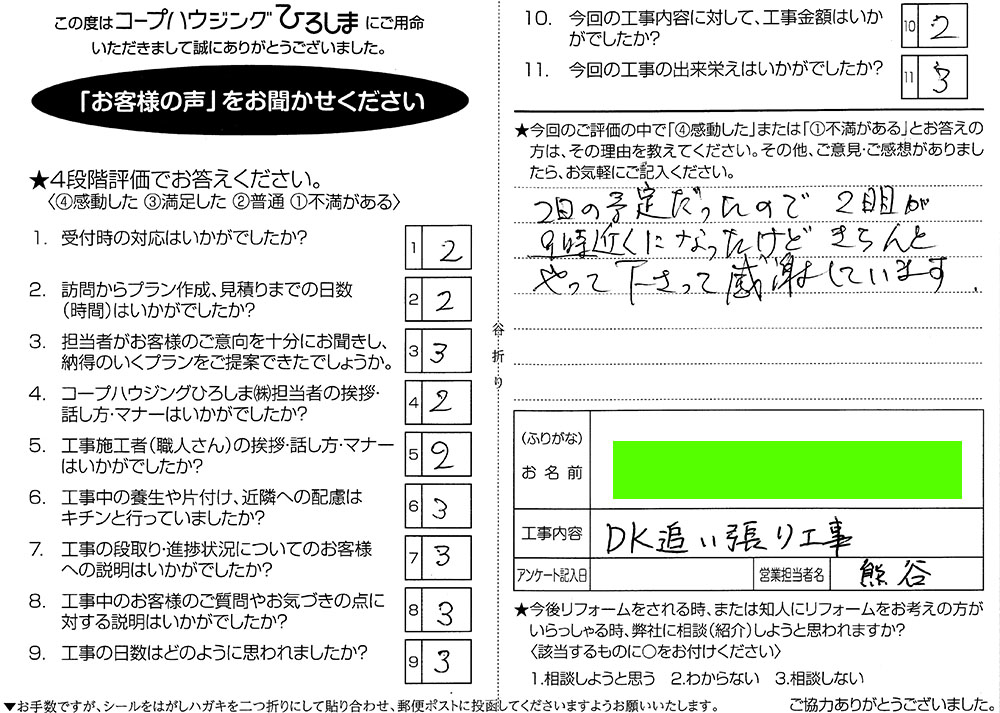 この度はコープハウジングひろしまにご用命
いただきまして誠にありがとうございました。
「お客様の声」をお聞かせください
★4段階評価でお答えください。
〈④感動した ③満足した ②普通 ①不満がある〉
1. 受付時の対応はいかがでしたか?
1 2
2. 訪問からプラン作成、見積りまでの日数
(時間)はいかがでしたか?
2 2
3. 担当者がお客様のご意向を十分にお聞きし、
納得のいくプランをご提案できたでしょうか。
3 3
4. コープハウジングひろしま㈱担当者の挨拶・
話し方・マナーはいかがでしたか?
4 2
5. 工事施工者(職人さん)の挨拶・話し方・マナー
はいかがでしたか?
5 2
6. 工事中の養生や片付け、近隣への配慮は
キチンと行っていましたか?
6 3
7. 工事の段取り・進捗状況についてのお客様
への説明はいかがでしたか?
7 3
8. 工事中のお客様のご質問やお気づきの点に
対する説明はいかがでしたか?
8 3
9. 工事の日数はどのように思われましたか?
9 3
谷折り
10. 今回の工事内容に対して、工事金額はいか
がでしたか?
10 2
11. 今回の工事の出来栄えはいかがでしたか?
11 3
★今回のご評価の中で「④感動した」または「①不満がある」とお答えの
方は、その理由を教えてください。その他、ご意見・ご感想がありまし
たら、お気軽にご記入ください。
2日の予定だったので 2日目が
9時近くになったけど きちんと
やって下さって感謝しています.
(ふりがな)
お名前
工事内容 DK追い張り工事
アンケート記入日 営業担当者名 熊谷
★今後リフォームをされる時、または知人にリフォームをお考えの方が
いらっしゃる時、弊社に相談(紹介)しようと思われますか?
〈該当するものに○をお付けください〉
1.相談しようと思う 2.わからない 3.相談しない
▼お手数ですが、シールをはがしハガキを二つ折りにして貼り合わせ、郵便ポストに投函してくださいますようお願いいたします。
ご協力ありがとうございました。